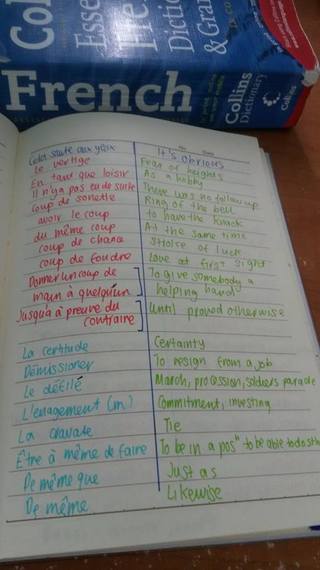 Col
Esse
Fre
Dictio
& Gra
French
Collins
Dictionary
Collins
Cela saute aux yeux It's obvious
Le vertige Fear of heights
En tant que loisir As a hobby
Il n'ya pas eu de suite There was no follow up
Coup de sonette Ring of the bell
avoir le coup to have the knack
du même coup At the same time
coup de chance Stroke of luck
coup de foudre Love at first sight
Donner un coup de To give somebody a
main à quelqu'un helping hand
Jusqu'à preuve du Until proved otherwise
contraire
La certitude Certainty
Démissioner To resign from a job
Le défilé March, procession, soldiers parade
L'enagement (m) Commitment, investing
La cravate Tie
Être à même de faire To be in a posⁿ to be able to do sth
De même que Just as
De même Likewise